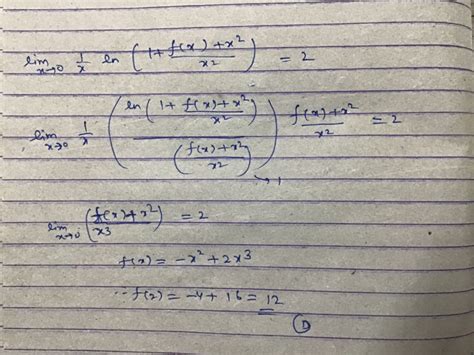 lim x→0 1/x ln (1 + f(x) + x²/x²) = 2
lim x→0 1/x (ln (1 + f(x) + x²/x²) / (f(x) + x²/x²)) f(x) + x²/x² = 2
→ 1
lim x→0 (f(x) + x²/x3) = 2
f(x) = -x² + 2x3
∴ f(2) = -4 + 16 = 12
D